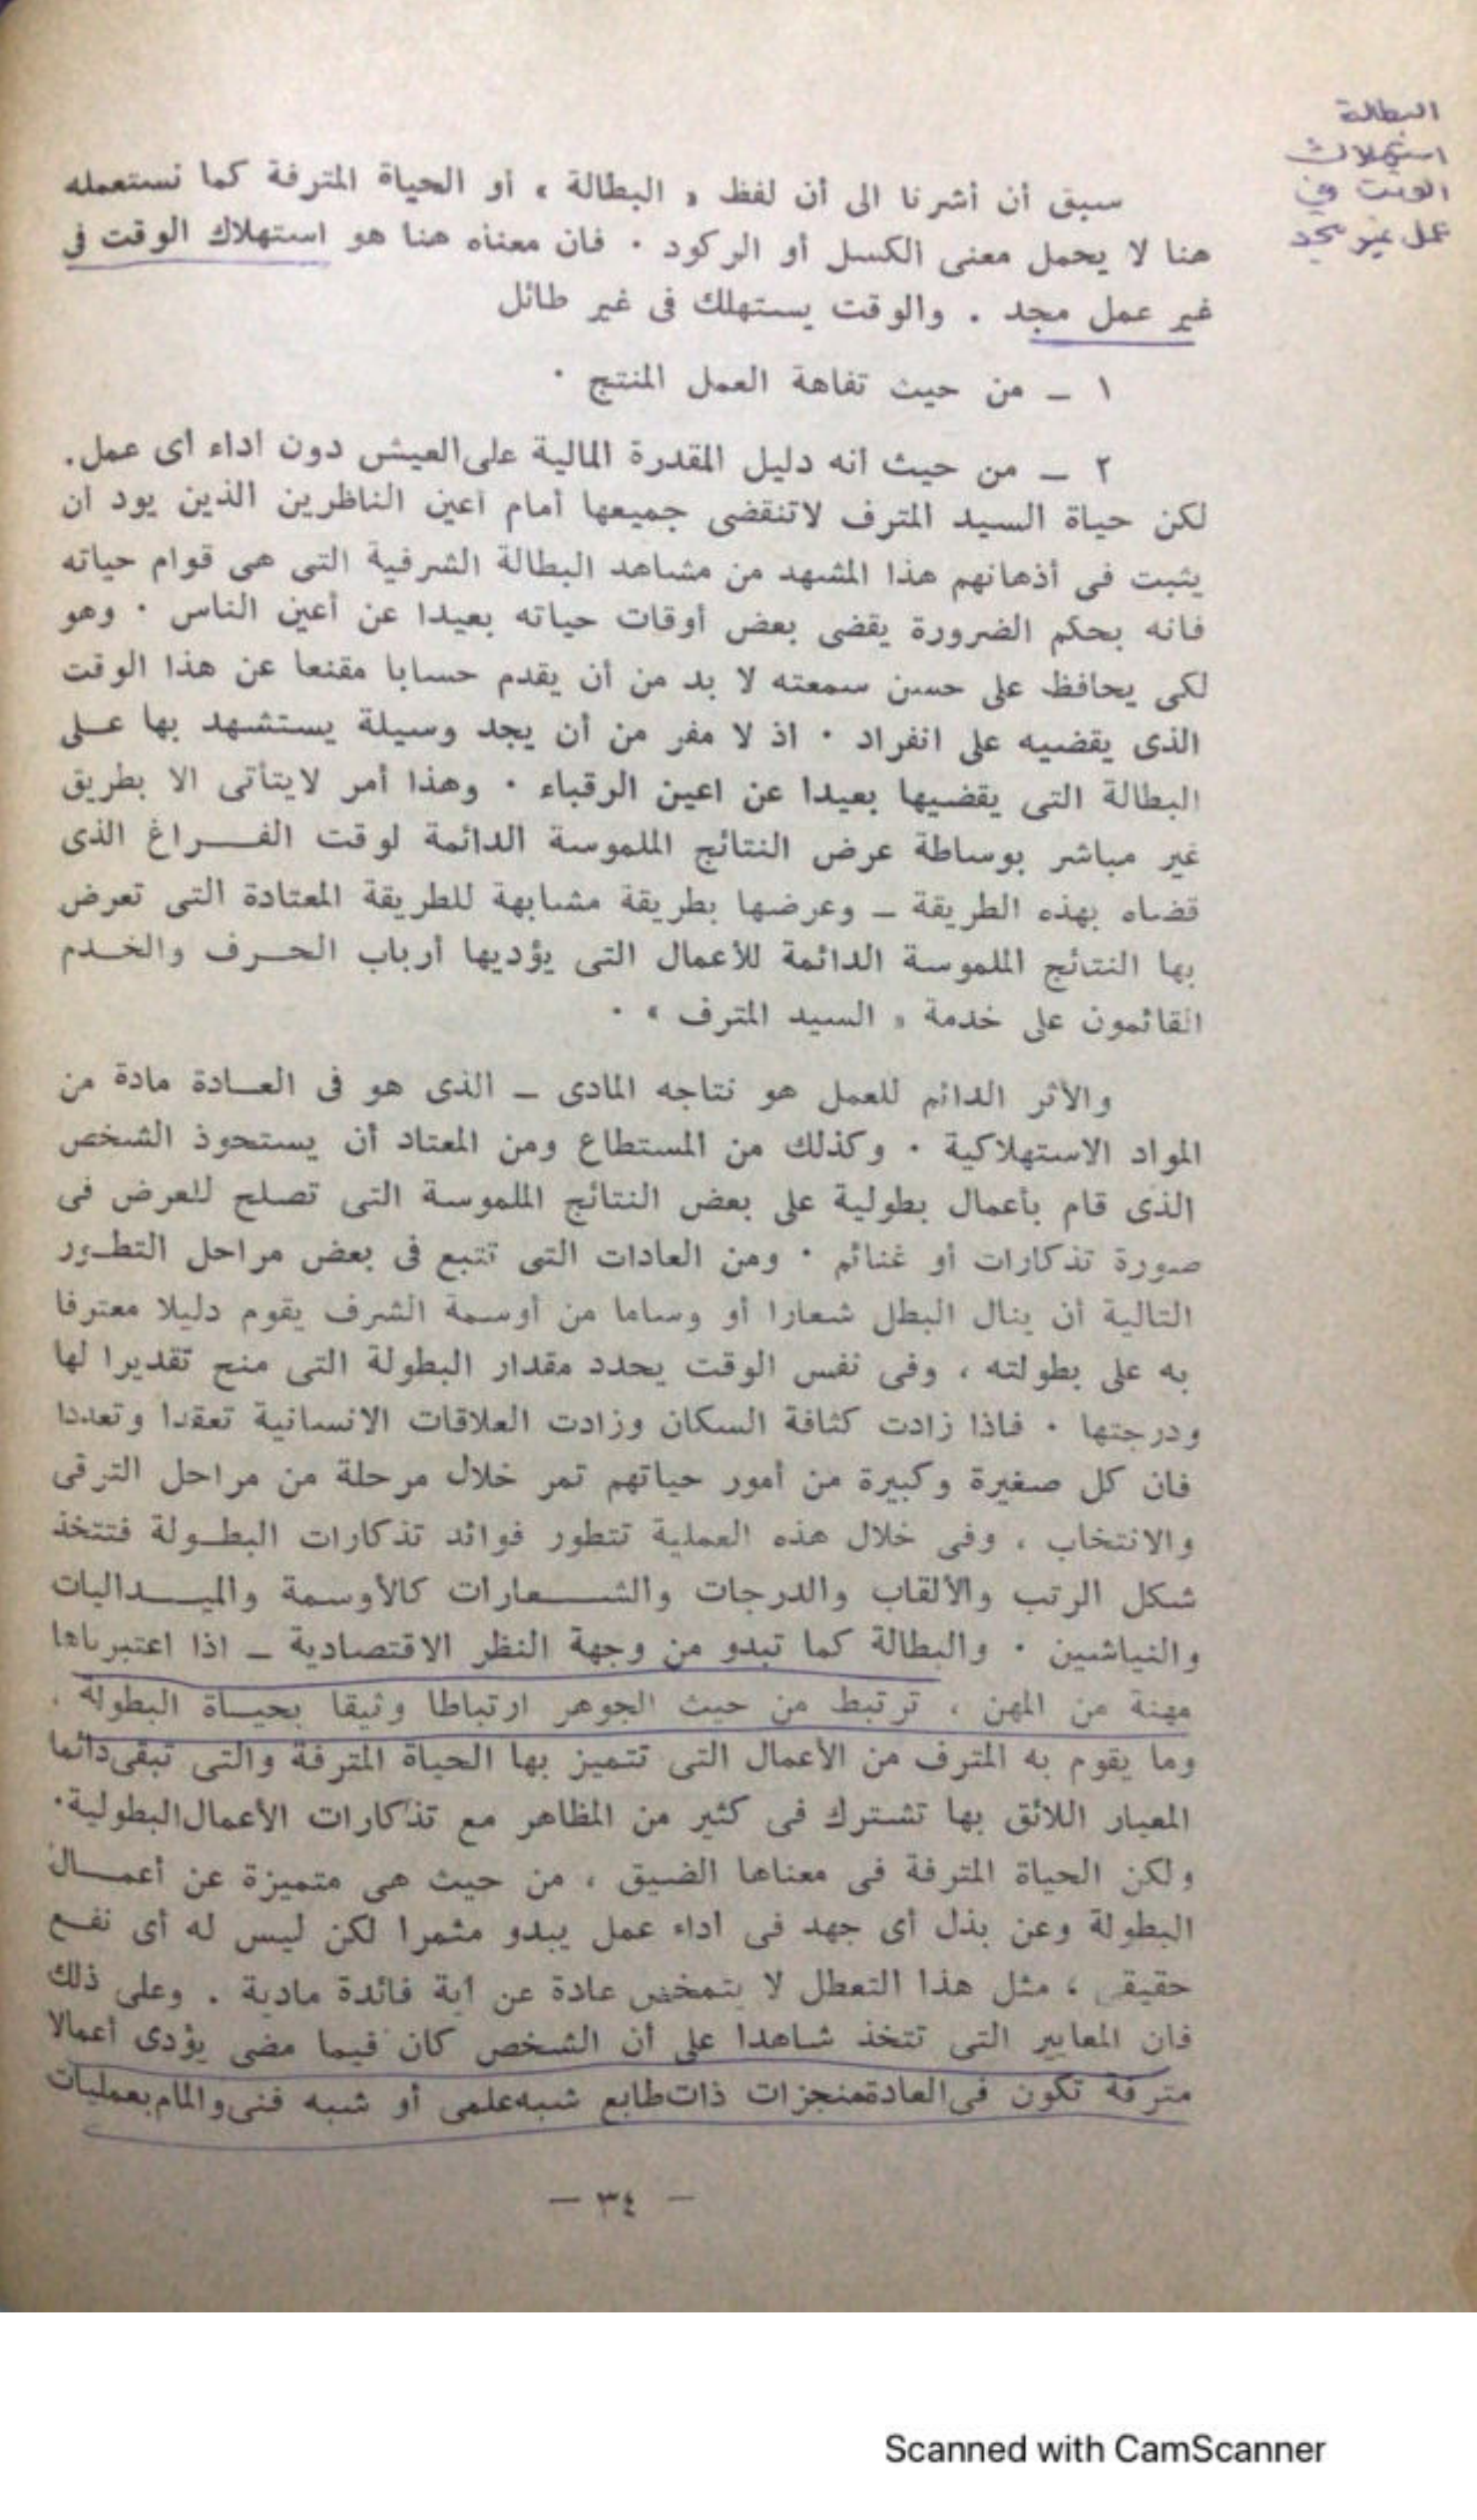 البطالة
استهلاك
الوقت في
عمل غير مجد
سبق أن أشرنا الى أن لفظ « البطالة » أو الحياة المترفة كما نستعمله
هنا لا يحمل معنى الكسل أو الركود · فان معناه هنا هو استهلاك الوقت فى
غير عمل مجد . والوقت يستهلك فى غير طائل
١ – من حيث تفاهة العمل المنتج ·
٢ – من حيث انه دليل المقدرة المالية على العيش دون اداء أى عمل.
لكن حياة السيد المترف لاتنقضى جميعها أمام أعين الناظرين الذين يود أن
يثبت فى أذهانهم هذا المشهد من مشاهد البطالة الشرفية التى هى قوام حياته
فانه بحكم الضرورة يقضى بعض أوقات حياته بعيدا عن أعين الناس · وهو
لكى يحافظ على حسن سمعته لا بد من أن يقدم حسابا مقنعا عن هذا الوقت
الذى يقضيه على انفراد · اذ لا مفر من أن يجد وسيلة يستشهد بها على
البطالة التى يقضيها بعيدا عن اعين الرقباء · وهذا أمر لايتأتى الا بطريق
غير مباشر بوساطة عرض النتائج الملموسة الدائمة لوقت الفراغ الذى
قضاه بهذه الطريقة – وعرضها بطريقة مشابهة للطريقة المعتادة التى تعرض
بها النتائج الملموسة الدائمة للأعمال التى يؤديها أرباب الحرف والخدم
القائمون على خدمة « السيد المترف » ·
والأثر الدائم للعمل هو نتاجه المادى – الذى هو فى العادة مادة من
المواد الاستهلاكية · وكذلك من المستطاع ومن المعتاد أن يستحوذ الشخص
الذى قام بأعمال بطولية على بعض النتائج الملموسة التى تصلح للعرض فى
صورة تذكارات أو غنائم · ومن العادات التى تتبع فى بعض مراحل التطور
التالية أن ينال البطل شعارا أو وساما من أوسمة الشرف يقوم دليلا معترفا
به على بطولته ، وفى نفس الوقت يحدد مقدار البطولة التى منح تقديرا لها
ودرجتها · فاذا زادت كثافة السكان وزادت العلاقات الانسانية تعقدا وتعددا
فان كل صغيرة وكبيرة من أمور حياتهم تمر خلال مرحلة من مراحل الترقى
والانتخاب ، وفى خلال هذه العملية تتطور فوائد تذكارات البطولة فتتخذ
شكل الرتب والألقاب والدرجات والشعارات كالأوسمة والميداليات
والنياشين · والبطالة كما تبدو من وجهة النظر الاقتصادية – اذا اعتبرناها
مهنة من المهن ، ترتبط من حيث الجوهر ارتباطا وثيقا بحياة البطولة .
وما يقوم به المترف من الأعمال التى تتميز بها الحياة المترفة والتى تبقى دائما
المعيار اللائق بها تشترك فى كثير من المظاهر مع تذكارات الأعمال البطولية·
ولكن الحياة المترفة فى معناها الضيق ، من حيث هى متميزة عن أعمال
البطولة وعن بذل أى جهد فى اداء عمل يبدو مثمرا لكن ليس له أى نفع
حقيقى ، مثل هذا التعطل لا يتمخض عادة عن أية فائدة مادية . وعلى ذلك
فان المعايير التى تتخذ شاهدا على أن الشخص كان فيما مضى يؤدى أعمالا
مترفة تكون فى العادة منجزات ذات طابع شبه علمى أو شبه فنى والمام بعمليات
– ٣٤ –
Scanned with CamScanner